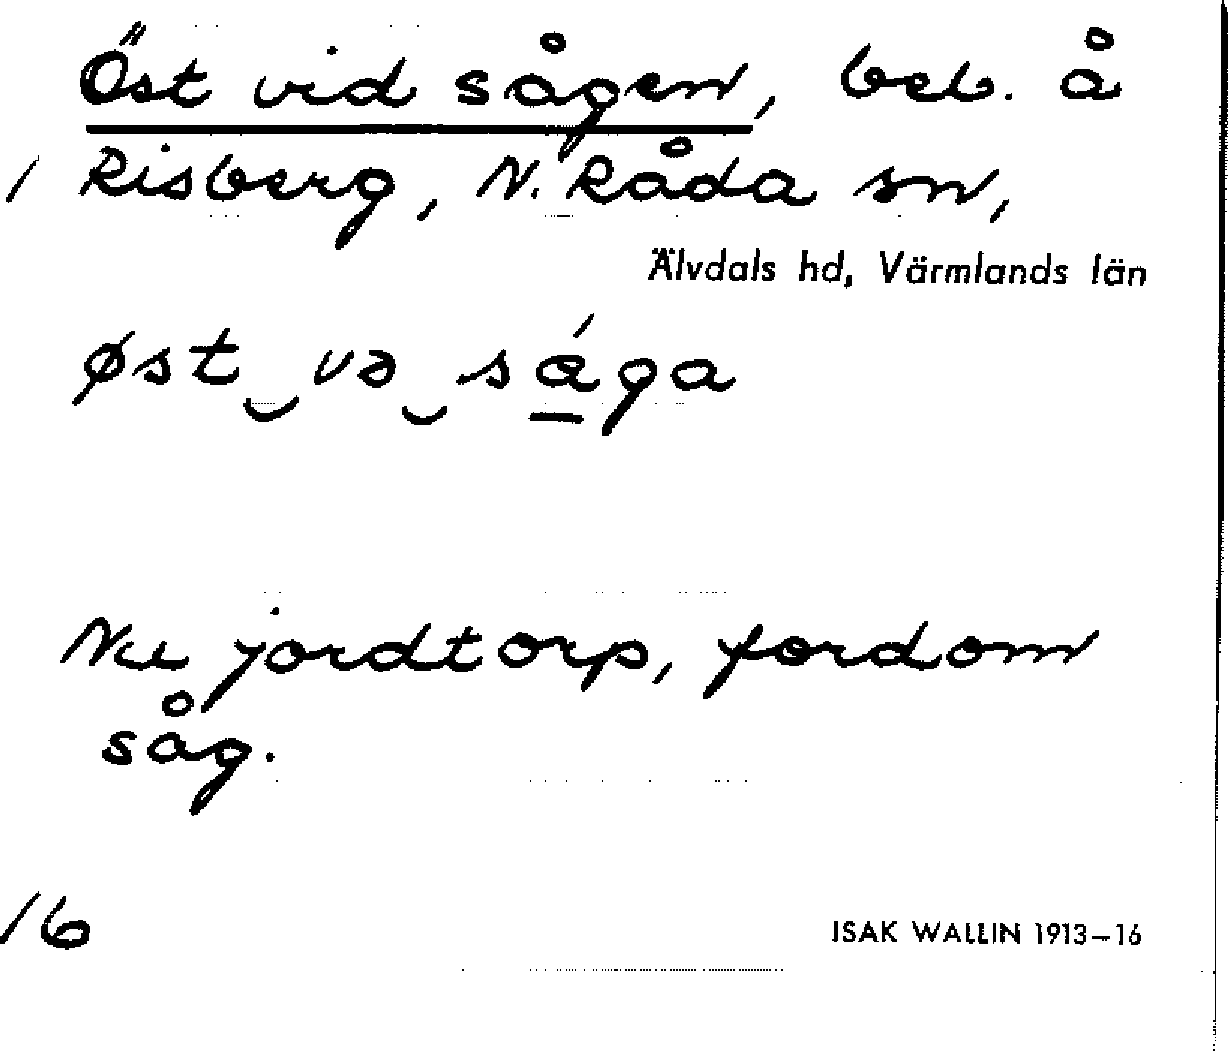 Öst vid sågen, beb. å
/ Risberg, N. Råda sn,
Älvdals hd, Värmlands län
øst‿və‿sá̱ga
Nu jordtorp, fordom
såg.
16
ISAK WALLIN 1913–16